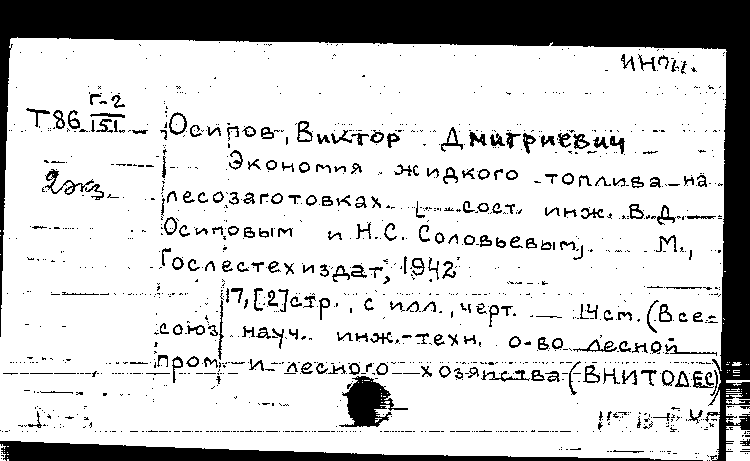 Г-2
Т86 151
Осипов, Виктор Дмитриевич
Экономия жидкого топлива на
2экз.
лесозаготовках. [сост. инж. В.Д.
Осиповым и Н.С. Соловьевым]. М.,
Гослестехиздат, 1942
17,[2]стр., с илл., черт. 14 см. (Все-
союз. науч. инж.-техн. о-во лесной
пром. и лесного хозяйства (ВНИТОЛЕС)